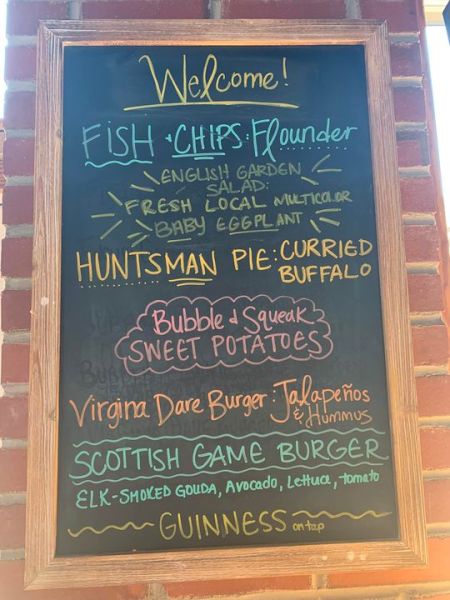 Welcome!
FISH & CHIPS: Flounder
ENGLISH GARDEN
SALAD:
FRESH LOCAL MULTICOLOR
BABY EGGPLANT
HUNTSMAN PIE: CURRIED
BUFFALO
Bubble & Squeak
SWEET POTATOES
Virgina Dare Burger: Jalapeños
& Hummus
SCOTTISH GAME BURGER
ELK-SMOKED GOUDA, Avocado, Lettuce, tomato
GUINNESS on tap